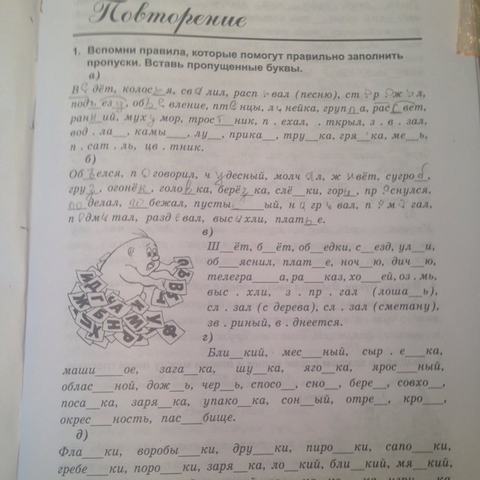 Повторение
1. Вспомни правила, которые помогут правильно заполнить
пропуски. Вставь пропущенные буквы.
а)
В е дёт, колос ь я, св а лил, расп е вал (песню), ст о р о ж и л,
подъ езд, объ я вление, пт е нцы, л и нейка, групп а, рас с вет,
ран н ий, мух о мор, трос т ник, п . ехал, . ткрыл, з . в . зал,
вод . ла__, камы___, лу__, прика__, тру__ка, гря__ка, ме__ь,
п . сат . ль, цв . тник.
б)
Об ъ елся, п о говорил, ч у десный, молч а л, ж и вёт, сугро б,
гру з, огонё к, голо в ка, берё з ка, слё__ки, гори__, пр о снулся,
по делал, по бежал, пусты____ый, н а гр е вал, п о м о гал,
п о дм е тал, разд е вал, выс о хли, плать е.
в)
Ш__ёт, б__ёт, об__едки, с__езд, ул__и,
об___яснил, плат__е, ноч__ю, дич__ю,
телегра____а, ра__каз, хо___ей, оз . мь,
выс . хли, з . пр . гал (лоша__ь),
сл . зал (с дерева), сл . зал (сметану),
зв . риный, в . днеется.
г)
Бли__кий, мес__ный, сыр . е___ка,
маши____ое, зага__ка, шу__ка, яго__ка, ярос___ный,
облас___ной, дож__ь, чер__ь, спосо__, сно__, бере__, совхо__,
поса__ка, заря__ка, упако__ка, сон__ый, отре__, кро___,
окрес___ность, пас___бище.
д)
Фла___ки, воробы___ки, дру___ки, пиро___ки, сапо___ки,
гребе___ки, поро___ки, заря__ка, ло__кий, бли__кий, мя__кий,